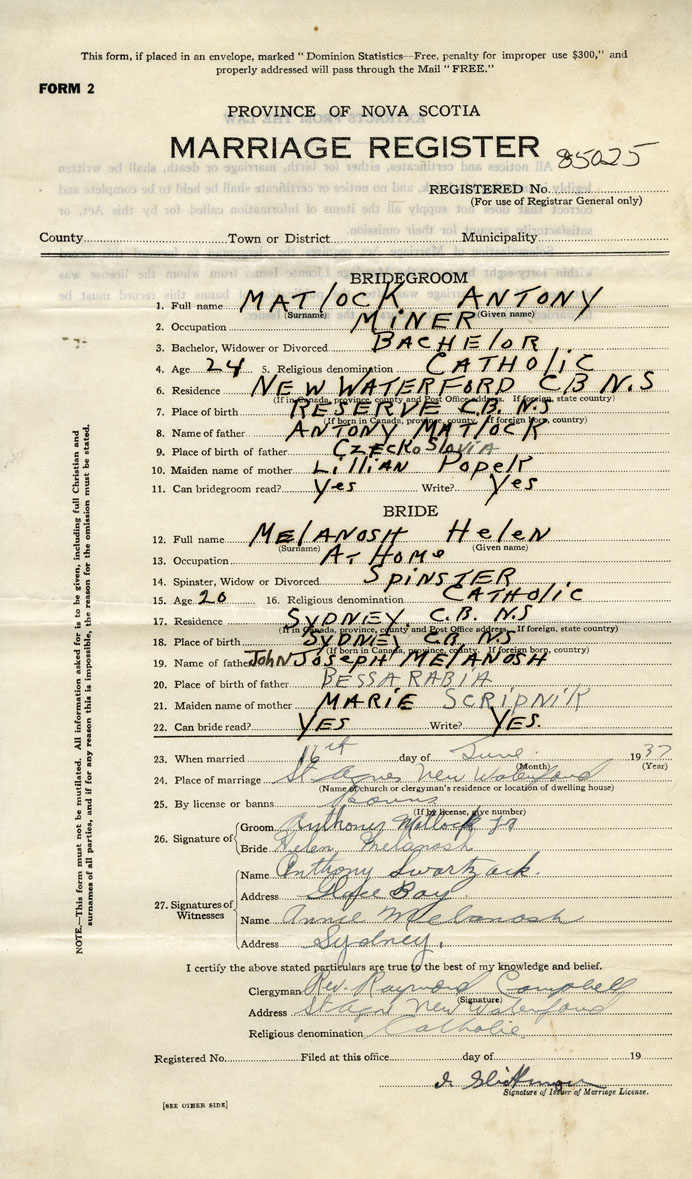 This form, if placed in an envelope, marked "Dominion Statistics—Free, penalty for improper use $300," and
properly addressed will pass through the Mail "FREE."
FORM 2
PROVINCE OF NOVA SCOTIA
MARRIAGE REGISTER 85025
REGISTERED No.
(For use of Registrar General only)
County Town or District Municipality
BRIDEGROOM
1. Full name MATLOCK ANTONY
(Surname) (Given name)
2. Occupation MINER
3. Bachelor, Widower or Divorced BACHELOR
4. Age 24 5. Religious denomination CATHOLIC
6. Residence NEW WATERFORD C.B N.S
(If in Canada, province, county and Post Office address. If foreign, state country)
7. Place of birth RESERVE C.B. N.S
(If born in Canada, province, county. If foreign born, country)
8. Name of father ANTONY MATLOCK
9. Place of birth of father CZECKOSLAVIA
10. Maiden name of mother LILLIAN POPEK
11. Can bridegroom read? Yes Write? Yes
BRIDE
12. Full name MELANOSH HELEN
(Surname) (Given name)
13. Occupation AT HOME
14. Spinster, Widow or Divorced SPINSTER
15. Age 20 16. Religious denomination CATHOLIC
17. Residence SYDNEY. C.B. N.S
(If in Canada, province, county and Post Office address. If foreign, state country)
18. Place of birth SYDNEY C.B. N.S
(If born in Canada, province, county. If foreign born, country)
19. Name of father JOHN JOSEPH MELANOSH
20. Place of birth of father BESSARABIA
21. Maiden name of mother MARIE SCRIPNIK
22. Can bride read? YES Write? YES.
23. When married 16th day of June 1937
(Month) (Year)
24. Place of marriage St Agnes New Waterford
(Name of church or clergyman's residence or location of dwelling house)
25. By license or banns Banns
(If by license, give number)
26. Signature of Groom Anthony Matlock Jr
Bride Helen Melanosh
27. Signatures of Witnesses Name Anthony Swartzack.
Address Glace Bay
Name Annie Melanosh
Address Sydney.
I certify the above stated particulars are true to the best of my knowledge and belief.
Clergyman Rev. Raymond Campbell
(Signature)
Address St Agnes New Waterford
Religious denomination Catholic
Registered No. Filed at this office day of 19
Signature of Issuer of Marriage License.
[SEE OTHER SIDE]
NOTE.—This form must not be mutilated. All information asked for is to be given, including full Christian and
surnames of all parties, and if for any reason this is impossible, the reason for the omission must be stated.